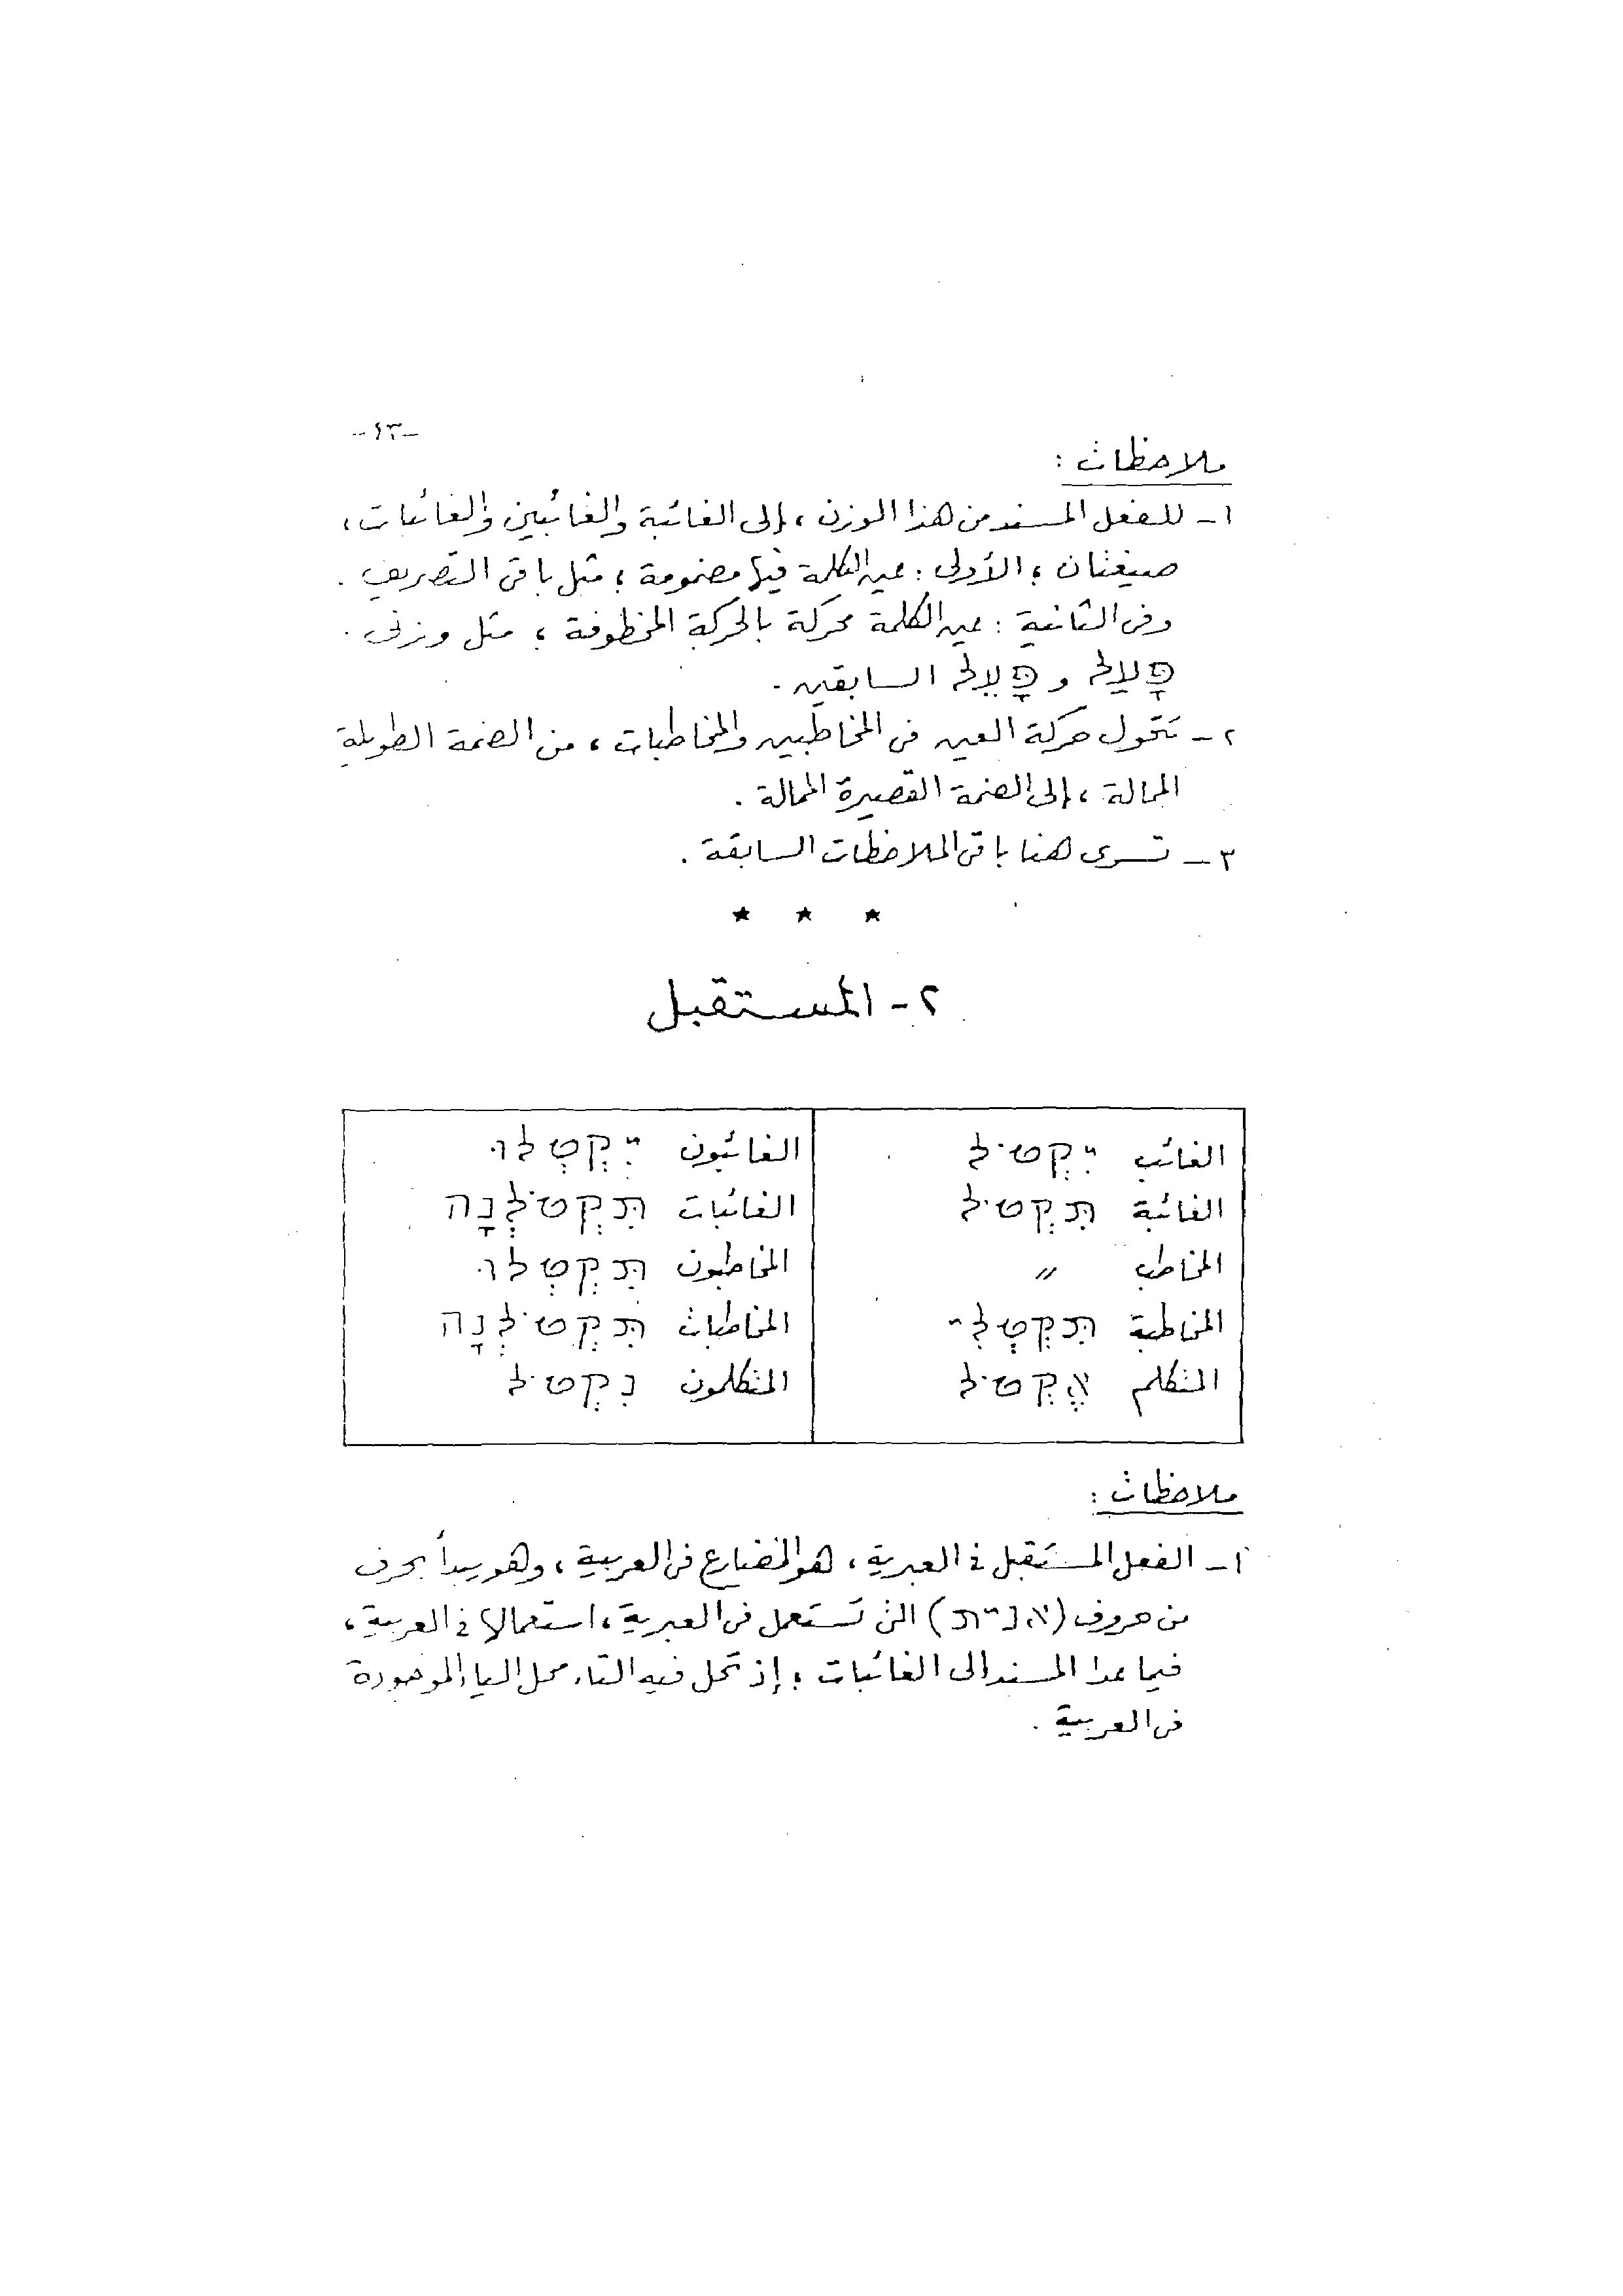 -٤٣-
ملاحظات :
١- للفعل المسند من هذا الوزن ، إلى الغائبة والغائبين والغائبات ،
صيغتان ؛ الأولى : عين الكلمة فيها مضمومة ؛ مثل باقى التصريف .
وفى الثانية : عين الكلمة محركة بالحركة المخطوفة ؛ مثل وزنى
פָּעַל و פָּעֵל السابقين .
٢- تتحول حركة العين فى المخاطبين والمخاطبات ، من الضمة الطويلة
الممالة ، إلى الضمة القصيرة الممالة .
٣- تسرى هنا باقى الملاحظات السابقة .
★ ★ ★
٢- المستقبل
الغائب יִקְטֹל الغائبون יִקְטְלוּ
الغائبة תִּקְטֹל الغائبات תִּקְטֹלְנָה
المخاطب 〃 المخاطبون תִּקְטְלוּ
المخاطبة תִּקְטְלִי المخاطبات תִּקְטֹלְנָה
المتكلم אֶקְטֹל المتكلمون נִקְטֹל
ملاحظات :
١- الفعل المستقبل فى العبرية ، هو المضارع فى العربية ، وهو يبدأ بحرف
من حروف (אנית) التى تستعمل فى العبرية ، استعمالها فى العربية ،
فيما عدا المسند الى الغائبات ؛ إذ تحل فيه التاء محل الياء الموجودة
فى العربية .